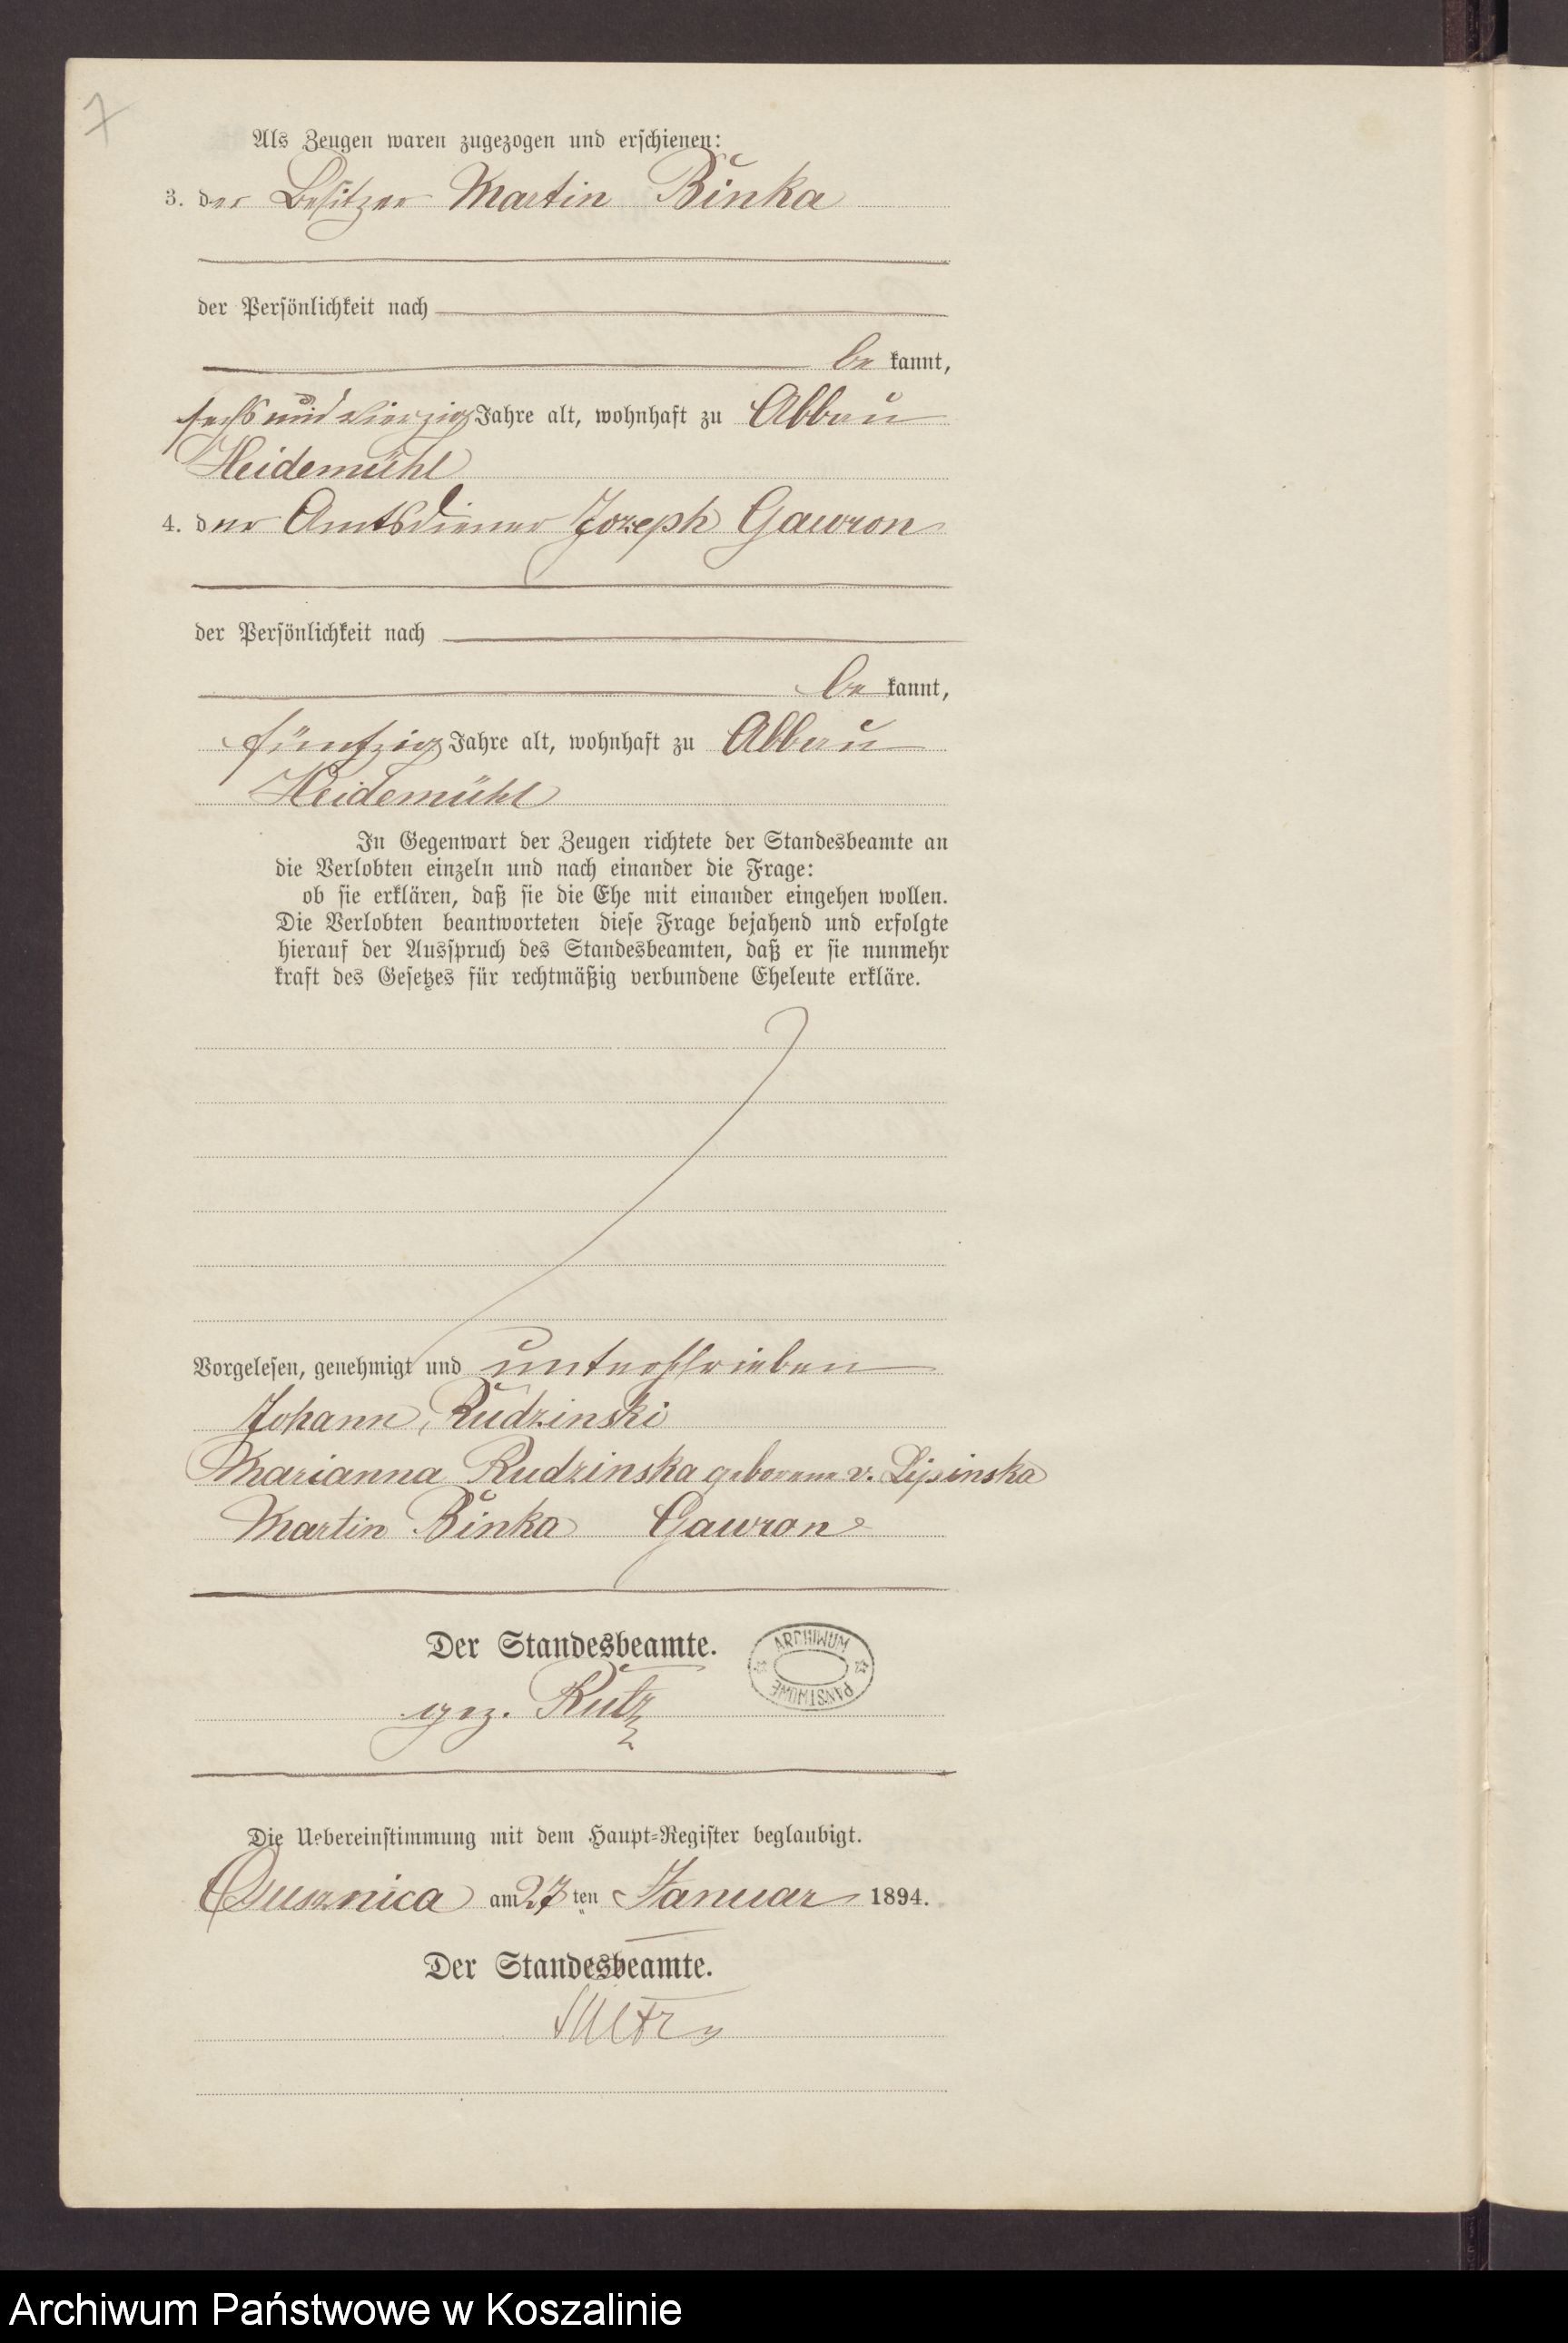 7
Als Zeugen waren zugezogen und erschienen:
3. der Besitzer Martin Binka
der Persönlichkeit nach
be kannt,
sechs und vierzig Jahre alt, wohnhaft zu Abbau
Heidemühl
4. der Amtsdiener Joseph Gawron
der Persönlichkeit nach
be kannt,
fünfzig Jahre alt, wohnhaft zu Abbau
Heidemühl
In Gegenwart der Zeugen richtete der Standesbeamte an
die Verlobten einzeln und nach einander die Frage:
ob sie erklären, daß sie die Ehe mit einander eingehen wollen.
Die Verlobten beantworteten diese Frage bejahend und erfolgte
hierauf der Ausspruch des Standesbeamten, daß er sie nunmehr
kraft des Gesetzes für rechtmäßig verbundene Eheleute erkläre.
Vorgelesen, genehmigt und unterschrieben
Johann Rudzinski
Marianna Rudzinska geborene v. Lipinska
Martin Binka Gawron
Der Standesbeamte.
ARCHIWUM PAŃSTWOWE
gez. Rutz
Die Uebereinstimmung mit dem Haupt-Register beglaubigt.
am 27 ten Januar 1894.
Der Standesbeamte.
Archiwum Państwowe w Koszalinie